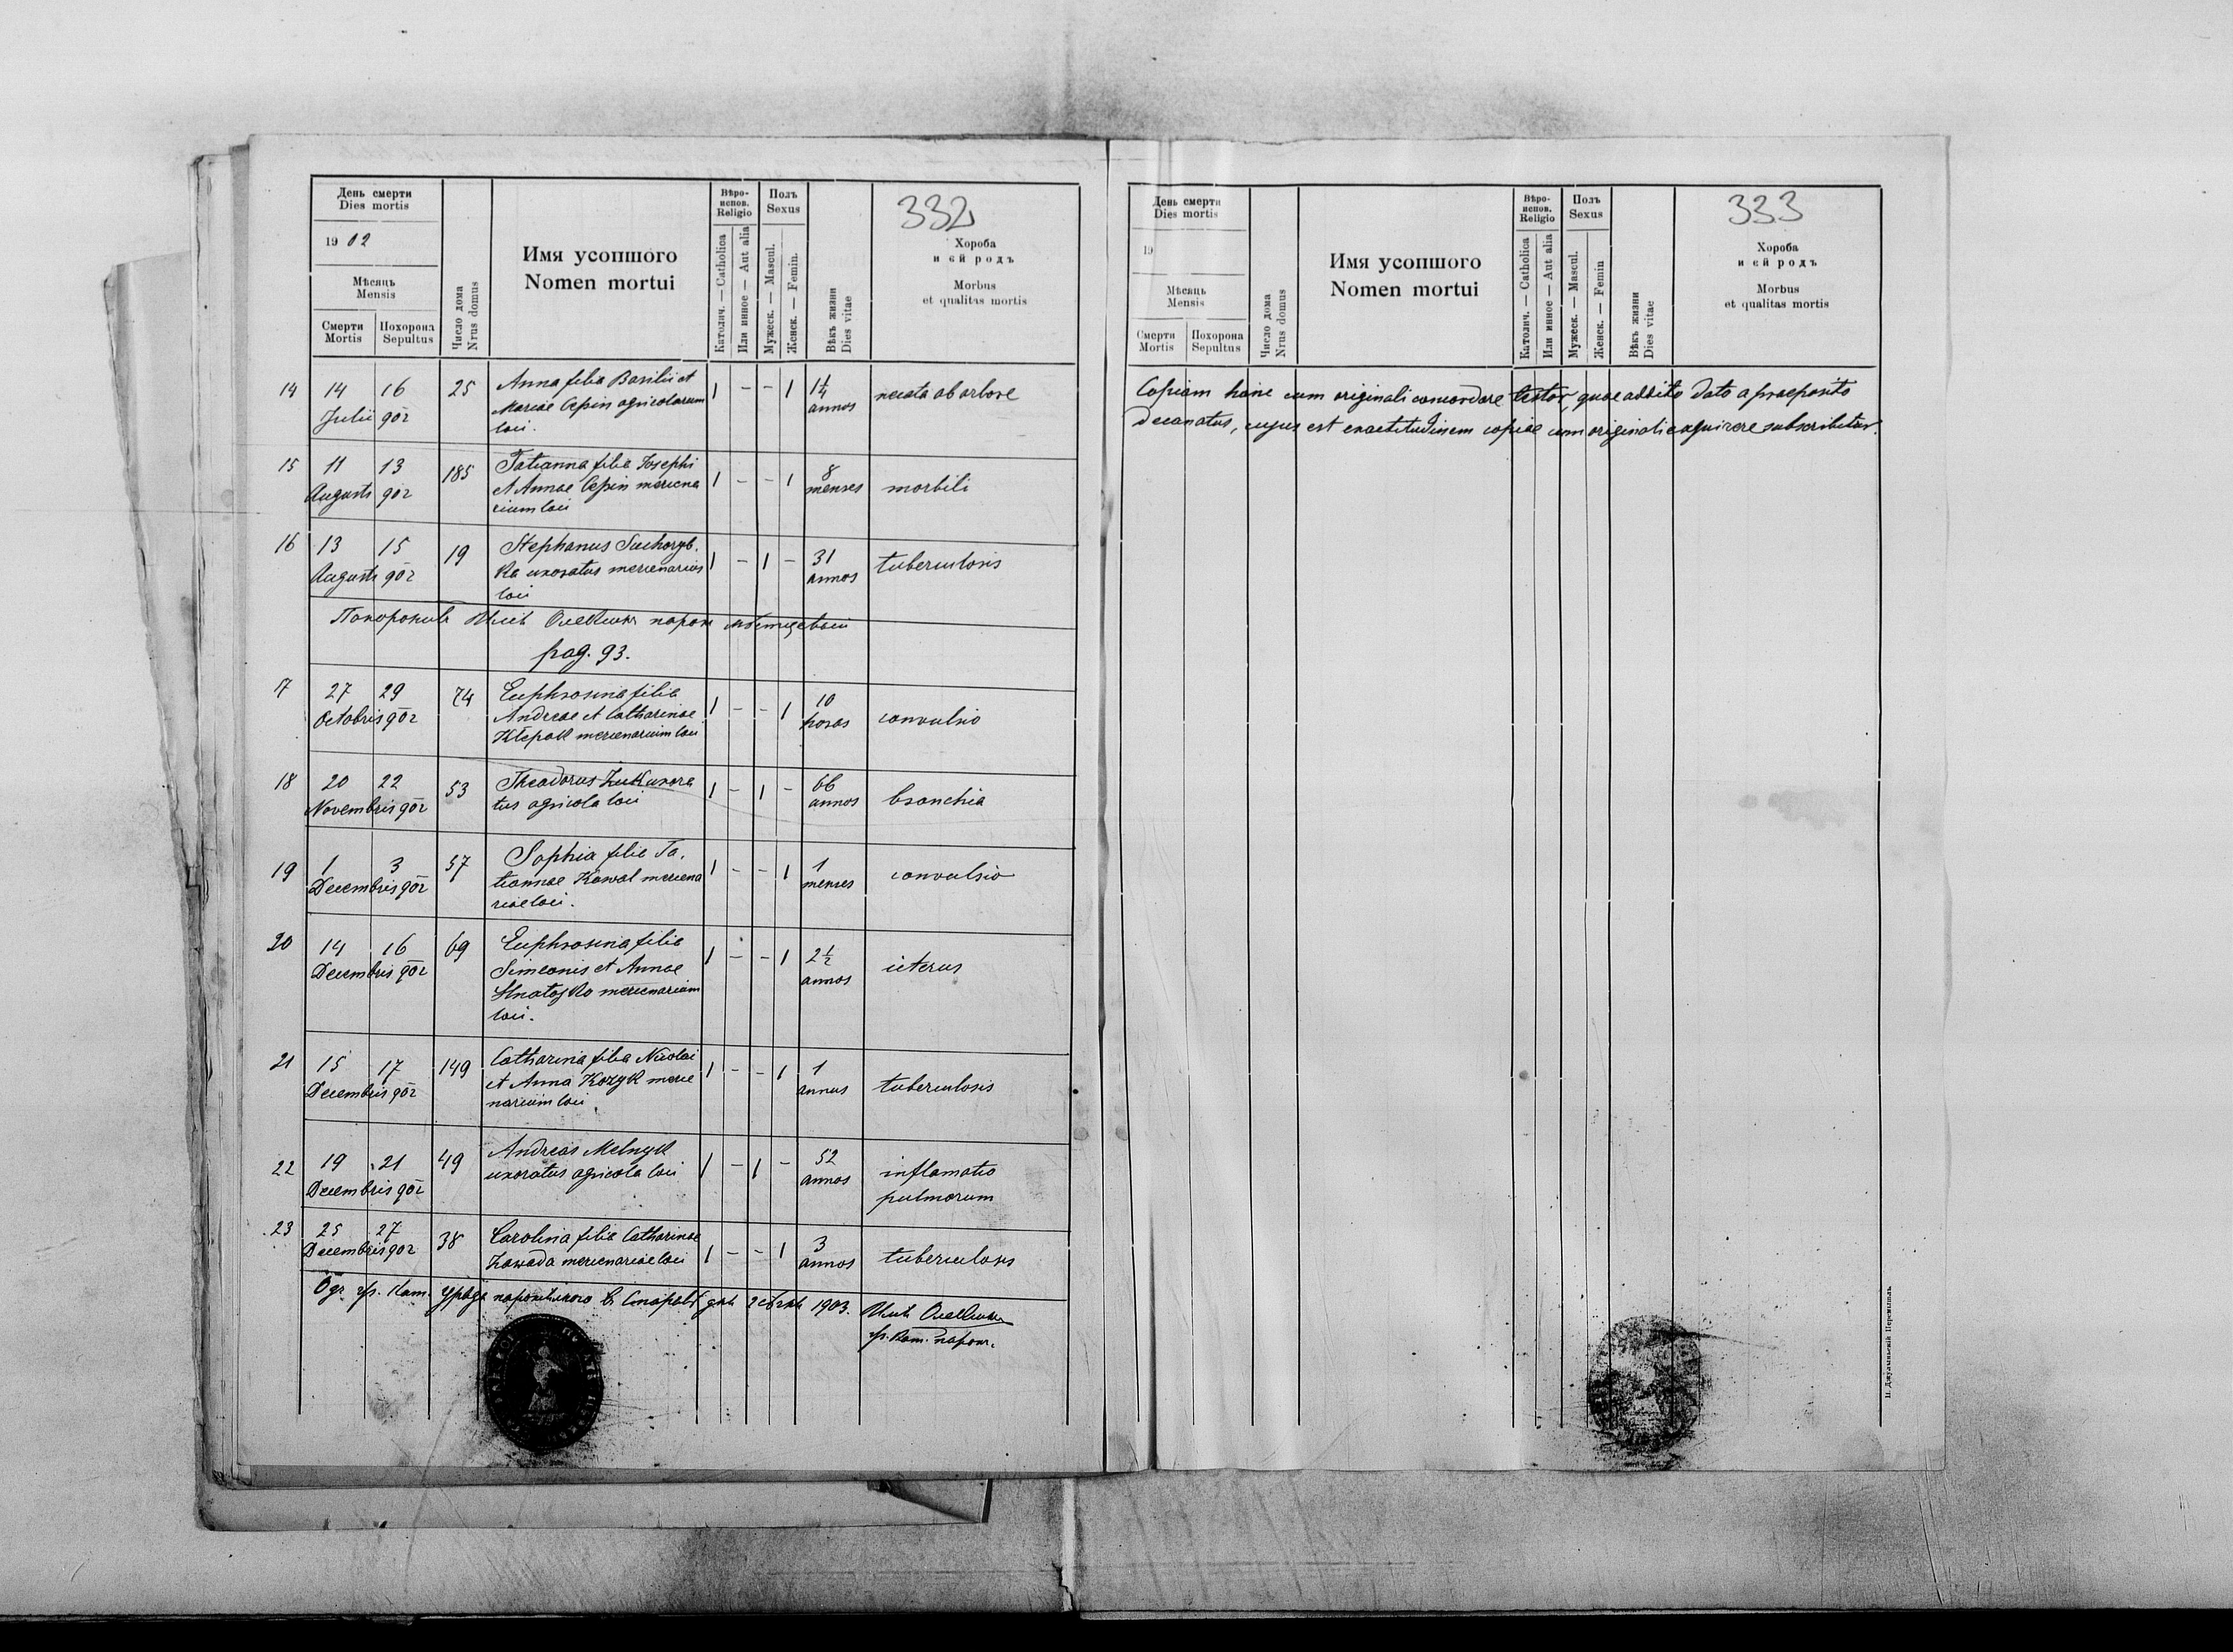 332
День смерти
Dies mortis
19 02
Мѣсяць
Mensis
Смерти
Mortis
Похорона
Sepultus
Число дома
Nrus domus
Имя усопшого
Nomen mortui
Вѣро-
испов.
Religio
Католич. — Catholica
Или инное — Aut alia
Полъ
Sexus
Мужеск. — Mascul.
Женск. — Femin.
Вѣкъ жизни
Dies vitae
Хороба
и єй родъ
Morbus
et qualitas mortis
14 14 16 25 Anna filia Basilii et 1 - - 1 1¼ necata ab arbore
Julii 902 Mariae Cepin agricolarum annos
loci.
15 11 13 185 Tatianna filia Josephi 1 - - 1 8 morbili
Augusti 902 et Annae Cepin mercena menses
rium loci
16 13 15 19 Stephanus Suchoryb. 1 - 1 - 31 tuberculosis
Augusti 902 ka uxoratus mercenarius annos
loci
Похоронивъ парох мѣстцевый
pag. 93.
17 27 29 74 Euphrosina filia 1 - - 1 10 convulsio
Octobris 902 Andreae et Catharinae horas
Klepak mercenarium loci
18 20 22 53 Theodorus Żuk uxora 1 - 1 - 66 bronchia
Novembris 902 tus agricola loci annos
19 1 3 57 Sophia filia Ta. 1 - - 1 1 convulsio
Decembris 902 tiannae Kowal mercena menses
riae loci.
20 14 16 69 Euphrosina filia 1 - - 1 2½ icterus
Decembris 902 Simeonis et Annae annos
Hnatojko mercenarium
loci.
21 15 17 149 Catharina filia Nicolai 1 - - 1 1 tuberculosis
Decembris 902 et Anna Kozyk merce annus
narium loci
22 19 21 49 Andreas Melnyk 1 - 1 - 52 inflamatio
Decembris 902 uxoratus agricola loci annos pulmorum
23 25 27 38 Carolina filia Catharinae 1 - - 1 3 tuberculosis
Decembris 902 Zawada mercenariae loci annos
Одъ гр. кат. уряда парохіяльного въ дня 1903.
гр. кат. парох.
333
День смерти
Dies mortis
19
Мѣсяць
Mensis
Смерти
Mortis
Похорона
Sepultus
Число дома
Nrus domus
Имя усопшого
Nomen mortui
Вѣро-
испов.
Religio
Католич. — Catholica
Или инное — Aut alia
Полъ
Sexus
Мужеск. — Mascul.
Женск. — Femin
Вѣкъ жизни
Dies vitae
Хороба
и єй родъ
Morbus
et qualitas mortis
Copiam hanc cum originali concordare testor, quae addito dato a praeposito
decanatus, cujus est exactitudinem copiae cum originali exquirere subscribetur.
Н. Джулыньскій Перемышль